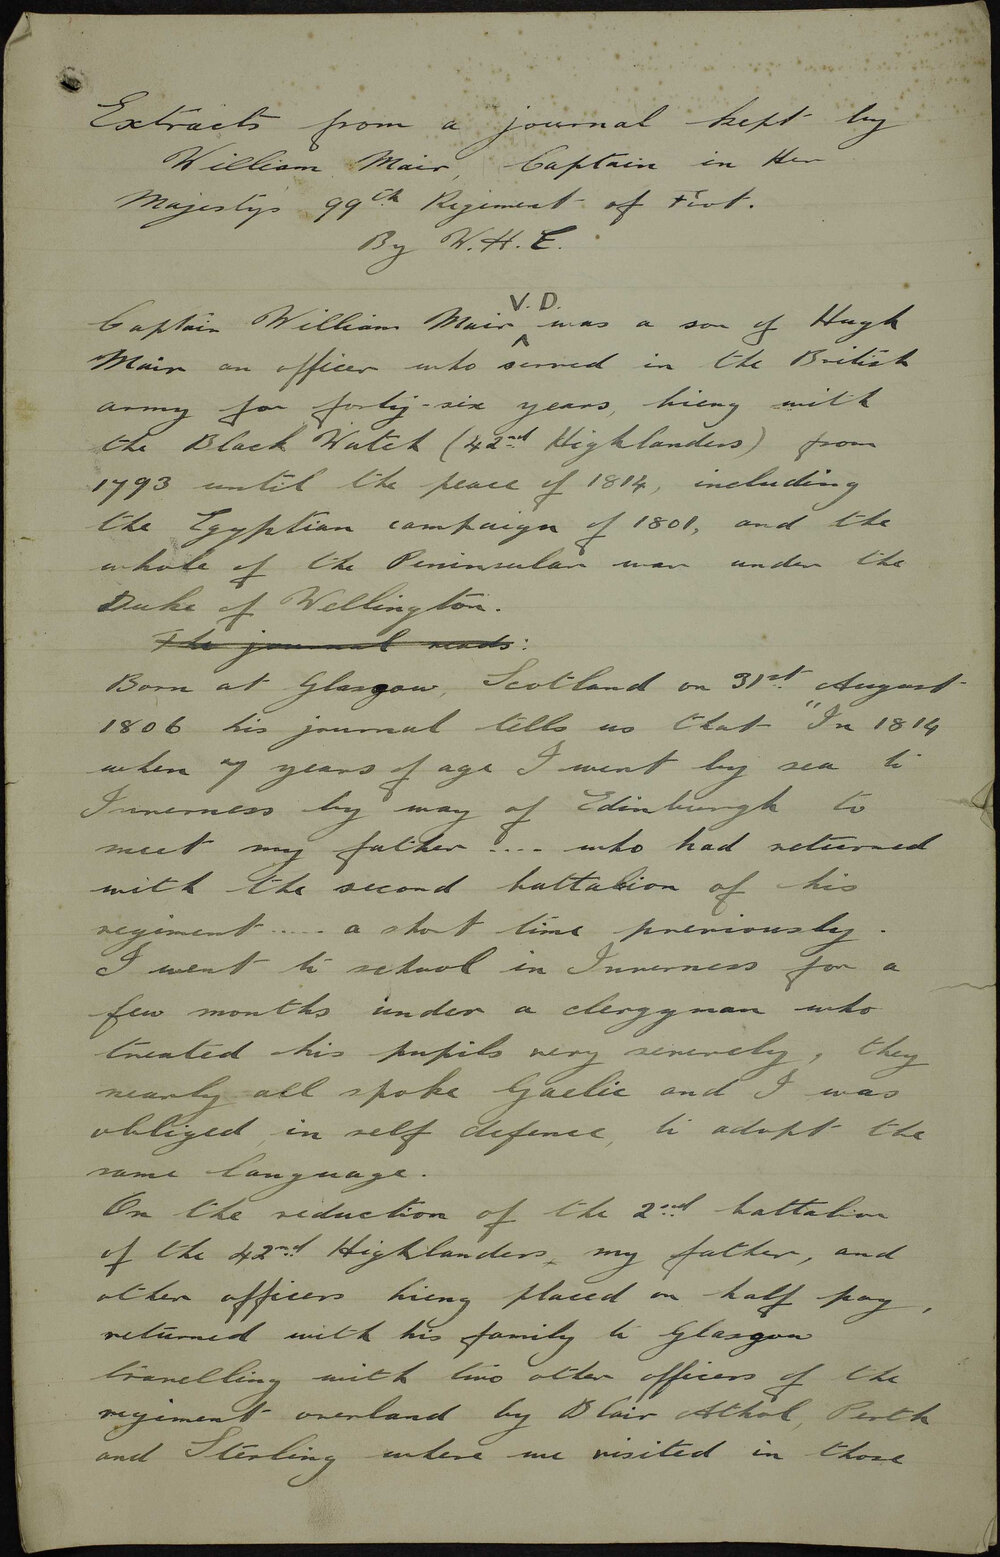 Extracts from a journal kept by
William Mair, Captain in Her
Majesty's 99th Regiment of Foot.
By W.H.E.
V.D.
Captain William Mair ^ was a son of Hugh
Mair an officer who served in the British
army for forty-six years, being with
the Black Watch (42nd Highlanders) from
1793 until the peace of 1814, including
the Egyptian campaign of 1801, and the
whole of the Peninsular war under the
Duke of Wellington.
The journal reads:
Born at Glasgow, Scotland on 31st August
1806 his journal tells us that "In 1814
when 7 years of age I went by sea to
Inverness by way of Edinburgh to
meet my father .... who had returned
with the second battalion of his
regiment ..... a short time previously.
I went to school in Inverness for a
few months under a clergyman who
treated his pupils very severely, they
nearly all spoke Gaelic and I was
obliged, in self defence, to adopt the
same language.
On the reduction of the 2nd battalion
of the 42nd Highlanders, my father, and
other officers being placed on half pay,
returned with his family to Glasgow
travelling with two other officers of the
regiment overland by Blair Athol, Perth
and Sterling where we visited in those